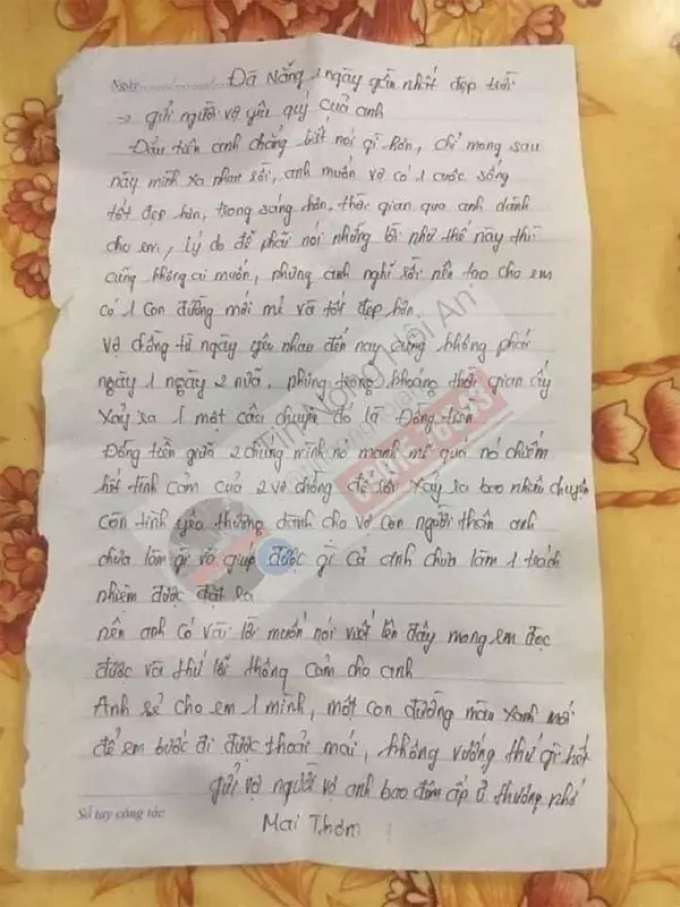 Note: Đà Nẵng 1 ngày gần nhất đẹp trời
→ gửi người vợ yêu quý của anh
Đầu tiên anh chẳng biết nói gì hơn, chỉ mong sau
này mình xa nhau rồi, anh muốn vợ có 1 cuộc sống
tốt đẹp hơn, trong sáng hơn, thời gian qua anh dành
cho em, lý do để phải nói những lời như thế này thì
cũng không ai muốn, nhưng anh nghĩ rồi nên tạo cho em
có 1 con đường mới mẻ và tốt đẹp hơn.
Vợ chồng từ ngày yêu nhau đến nay cũng không phải
ngày 1 ngày 2 nữa, nhưng trong khoảng thời gian ấy
xảy ra 1 một câu chuyện đó là Đồng tiền
Đồng tiền giữa 2 chúng mình nó mạnh mẽ quá nó chiếm
hết tình cảm của 2 vợ chồng để rồi xảy ra bao nhiêu chuyện
còn tình yêu thương dành cho vợ con người thân anh
chưa làm gì và giúp được gì cả anh chưa làm 1 trách
nhiệm được đặt ra
nên anh có vài lời muốn nói viết lên đây mong em đọc
được và thứ lỗi thông cảm cho anh
Anh sẽ cho em 1 mình, một con đường màu xanh mới
để em bước đi được thoải mái, không vướng thứ gì hết
gửi vợ người vợ anh bao đêm ấp ủ thương nhớ
Mai Thơm
Sổ tay công tác
Tin Nóng Hội An